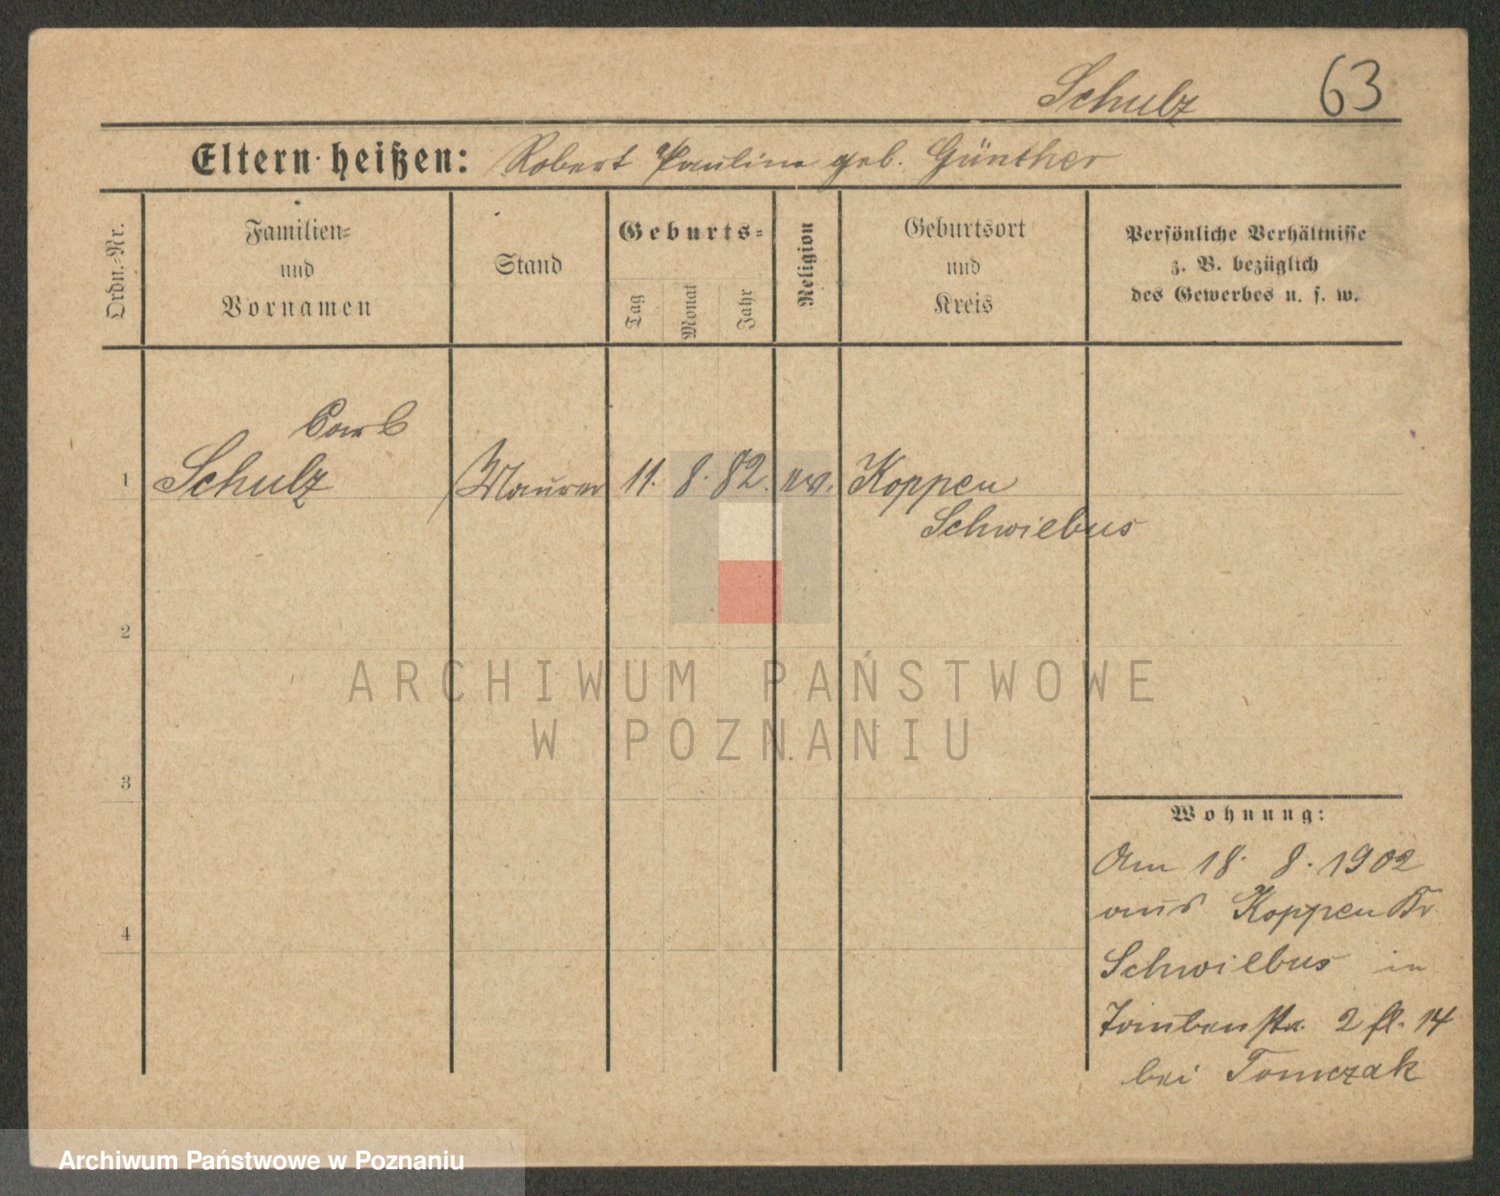 Schulz 63
Eltern heißen: Robert Pauline geb. Günther
Ordn.-Nr.
Familien-
und
Vornamen
Stand
Geburts-
Tag
Monat
Jahr
Religion
Geburtsort
und
Kreis
Persönliche Verhältnisse
z. B. bezüglich
des Gewerbes u. s. w.
Carl
1 Schulz Maurer 11. 8. 82. ev. Koppen
Schwiebus
2
3
4
Wohnung:
Am 18. 8. 1902
aus Koppen Kr
Schwiebus in
Taubenstr. 2 fl. 14
bei Tomczak
ARCHIWUM PAŃSTWOWE
W POZNANIU
Archiwum Państwowe w Poznaniu